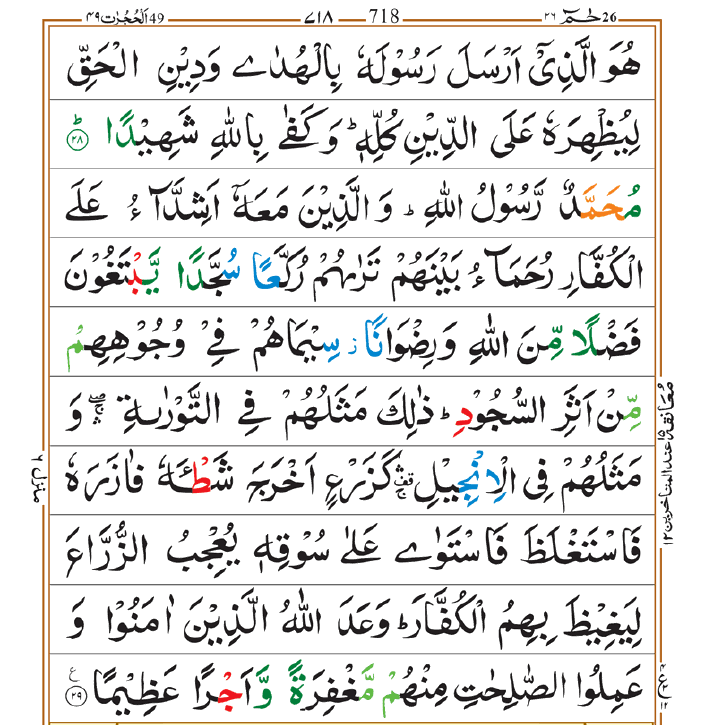 الْحُجُرٰت ٤٩ 49 ٧١٨ 718 حٰمٓ ٢٦ 26
هُوَ الَّذِیْۤ اَرْسَلَ رَسُوْلَهٗ بِالْهُدٰی وَدِیْنِ الْحَقِّ
لِیُظْهِرَهٗ عَلَی الدِّیْنِ كُلِّهٖ ؕ وَكَفٰی بِاللّٰهِ شَهِیْدًا ؕ ﴿۲۸﴾
مُحَمَّدٌ رَّسُوْلُ اللّٰهِ ؕ وَ الَّذِیْنَ مَعَهٗۤ اَشِدَّآءُ عَلَی
الْكُفَّارِ رُحَمَآءُ بَیْنَهُمْ تَرٰىهُمْ رُكَّعًا سُجَّدًا یَّبْتَغُوْنَ
فَضْلًا مِّنَ اللّٰهِ وَرِضْوَانًا ؗ سِیْمَاهُمْ فِیْ وُجُوْهِهِمْ
مِّنْ اَثَرِ السُّجُوْدِ ؕ ذٰلِكَ مَثَلُهُمْ فِی التَّوْرٰىةِ ۛۖۚ وَ
مَثَلُهُمْ فِی الْاِنْجِیْلِ ۛ۫ۚ كَزَرْعٍ اَخْرَجَ شَطْـَٔهٗ فَاٰزَرَهٗ
فَاسْتَغْلَظَ فَاسْتَوٰی عَلٰی سُوْقِهٖ یُعْجِبُ الزُّرَّاعَ
لِیَغِیْظَ بِهِمُ الْكُفَّارَ ؕ وَعَدَ اللّٰهُ الَّذِیْنَ اٰمَنُوْا وَ
عَمِلُوا الصّٰلِحٰتِ مِنْهُمْ مَّغْفِرَةً وَّاَجْرًا عَظِیْمًا ﴿۲۹﴾ ع
معانقه ۱۵ عند المتاخرین ۱۲
منزل ۶
ع